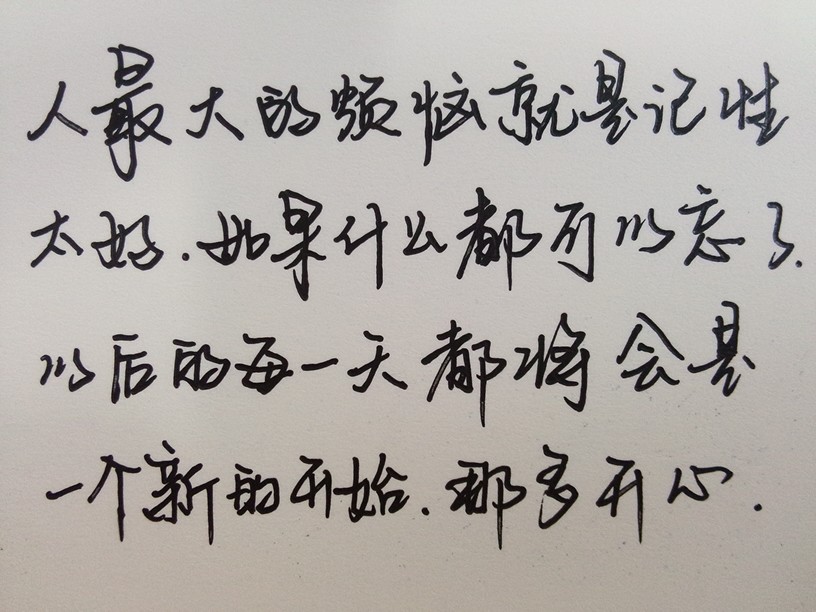 人最大的烦恼就是记性
太好.如果什么都可以忘了.
以后的每一天都将会是
一个新的开始.那多开心.